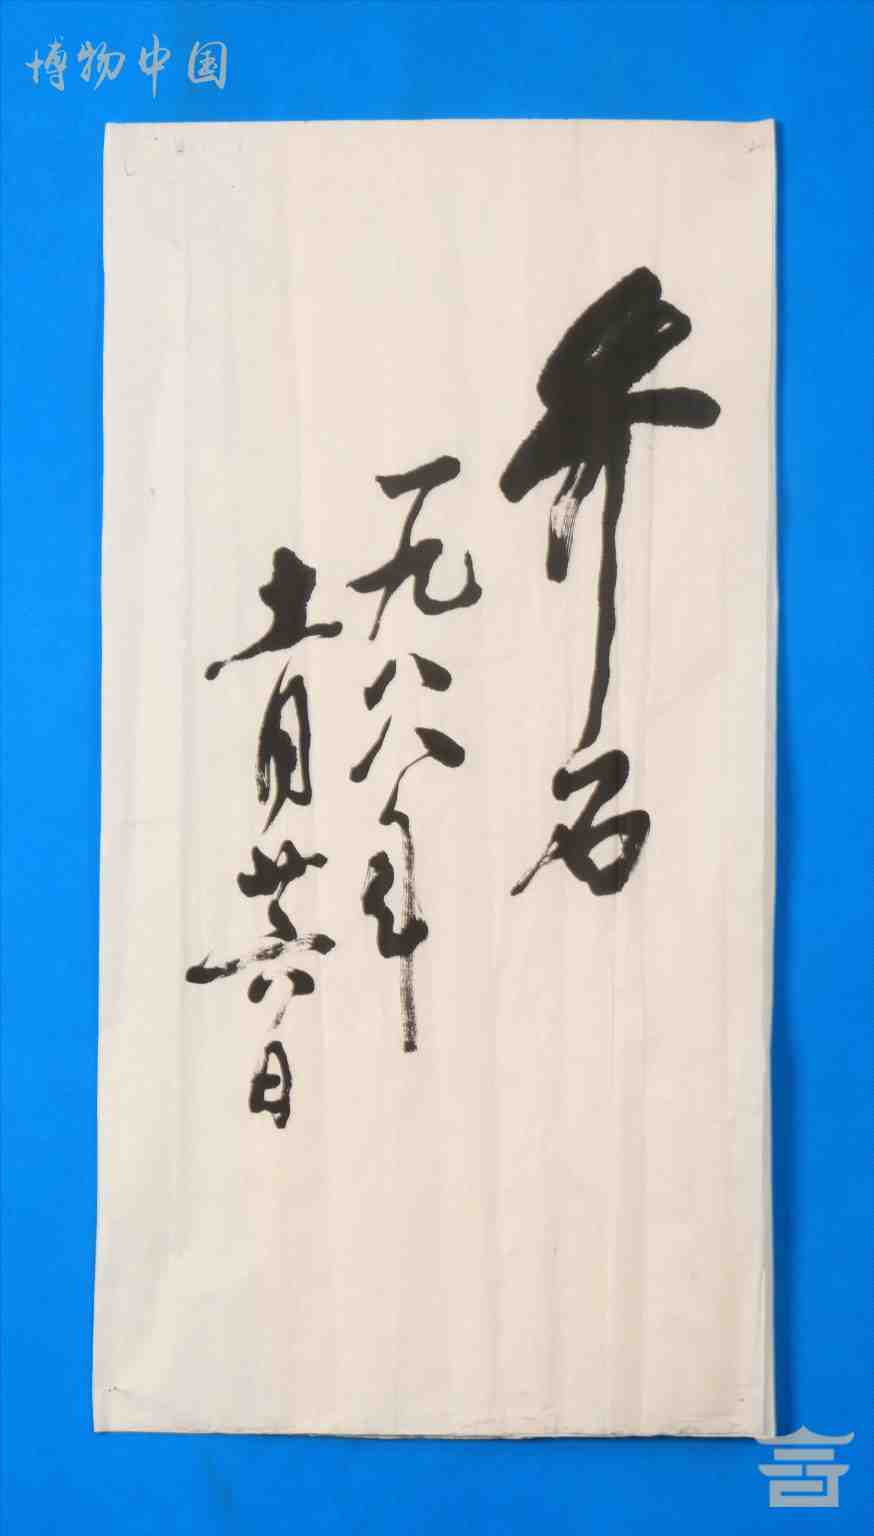 博物中国
乔石
一九八八年
十一月廿六日